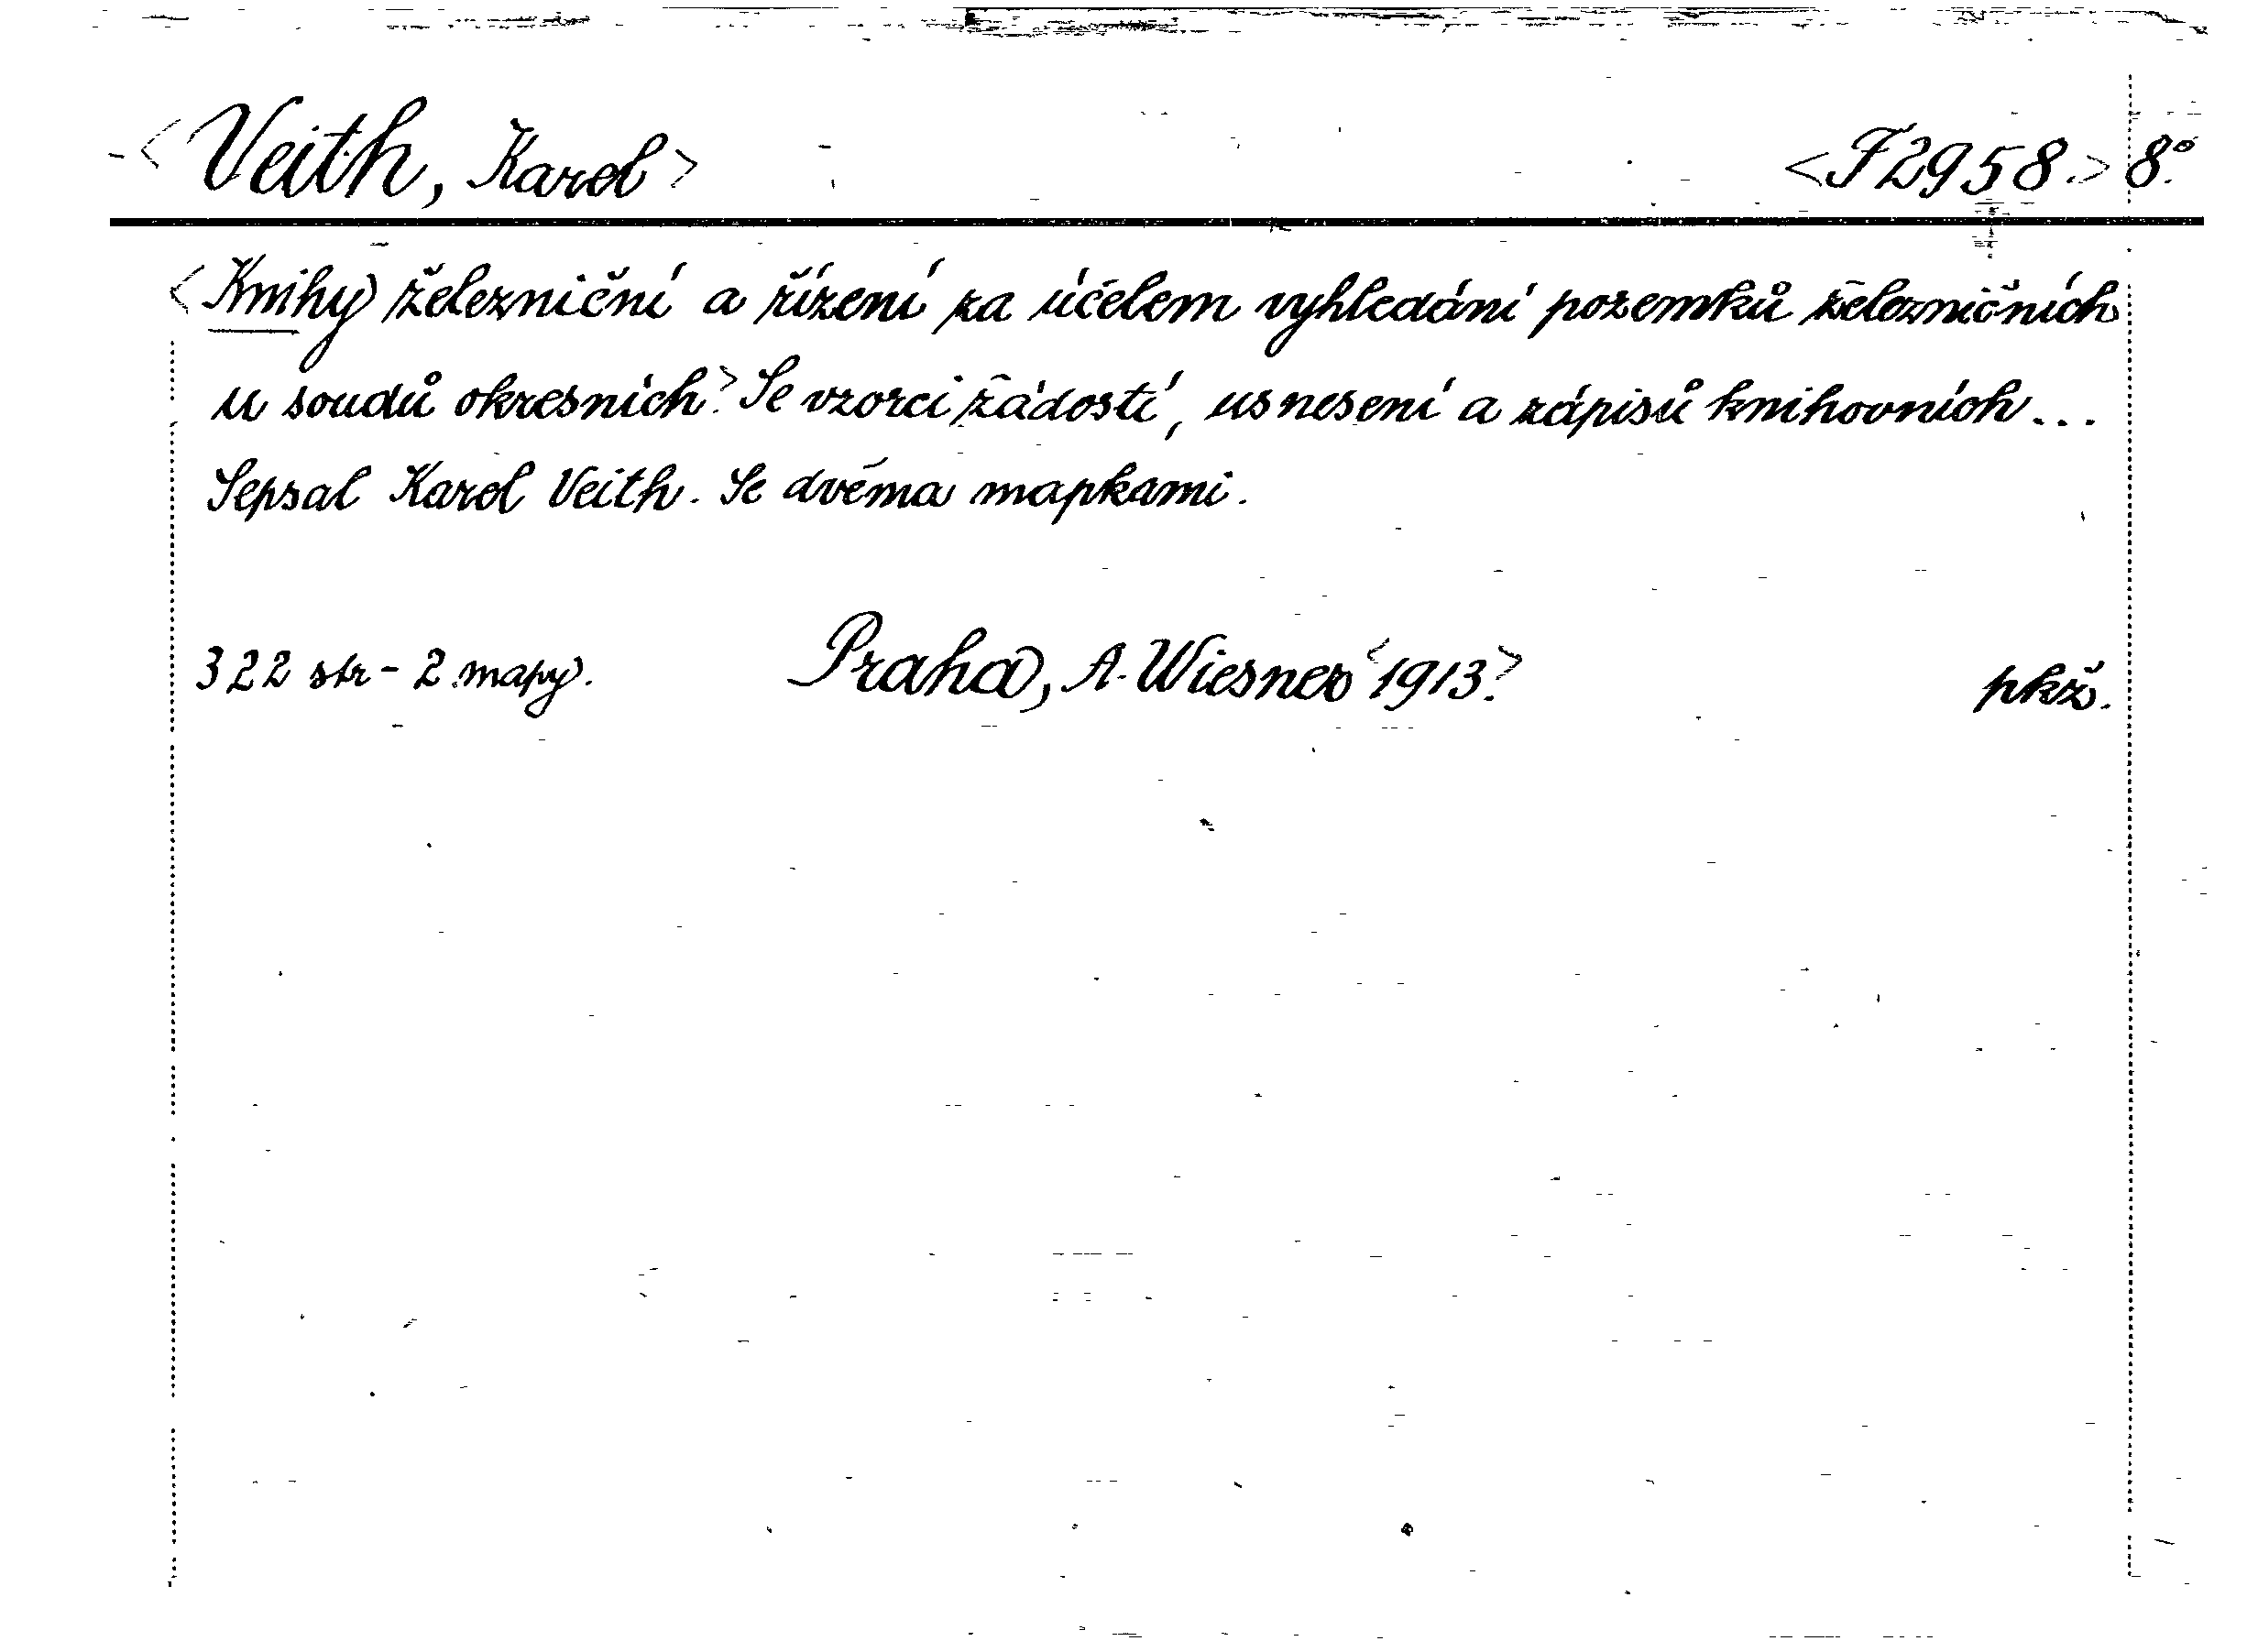 <Veith, Karel> <F 2958.> 8°.
<Knihy železniční a řízení za účelem vyhledání pozemků železničních
u soudů okresních.> Se vzorci žádostí, usnesení a zápisů knihovních...
Sepsal Karel Veith. Se dvěma mapkami.
322 str - 2 mapy. Praha, A. Wiesner <1913.> pkž.